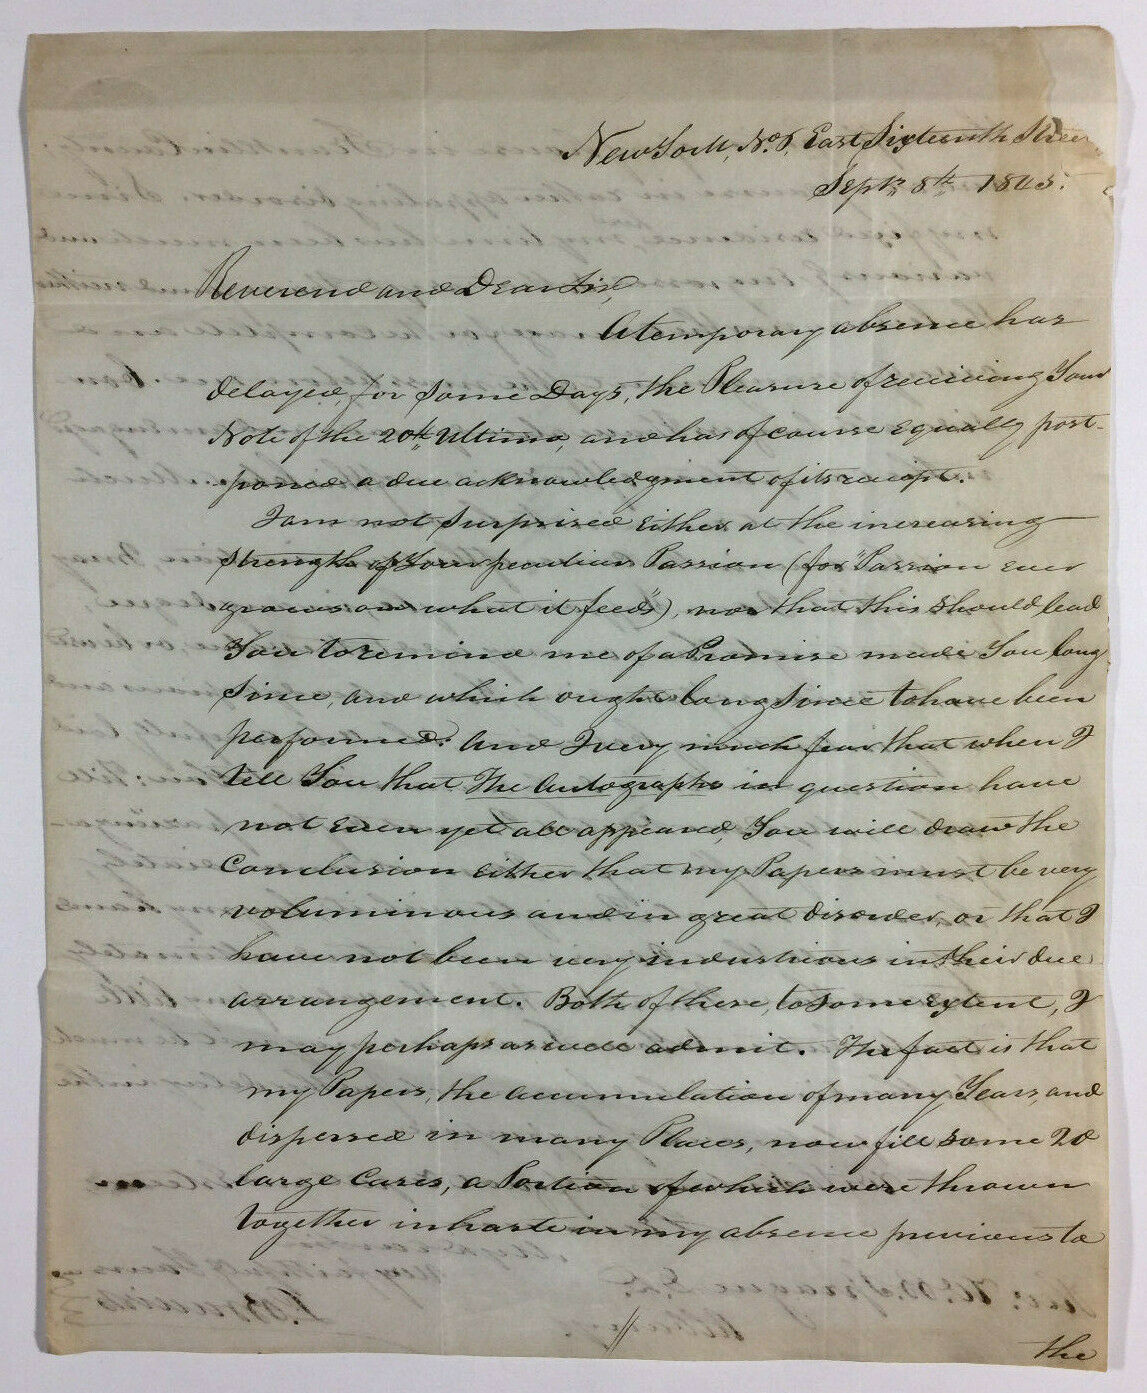 New York, No. 5, East Sixteenth Street
Septr. 8th 1845.
Reverend and Dear Sir,
A temporary absence has
delayed for some Days, the Pleasure of receiving Your
Note of the 20th Ultimo, and has of course equally post-
poned a due acknowledgment of its receipt.
I am not surprised either at the increasing
strength of Your peculiar Passion (for "Passion ever
grows on what it feeds"), nor that this should lead
You to remind me of a Promise made You long
since, and which ought long since to have been
performed. And I very much fear that when I
tell You that The Autographs in question have
not even yet all appeared, You will draw the
Conclusion either that my Papers must be very
voluminous and in great disorder, or that I
have not been very industrious in their due
arrangement. Both of these, to some extent, I
may perhaps as well admit. The fact is that
my Papers, the accumulation of many Years, and
dispersed in many Places, now fill some 20
large Cases, a Portion of which were thrown
together in haste in my absence previous to
the
Rev: W. B. Sprague D.D.
Albany.